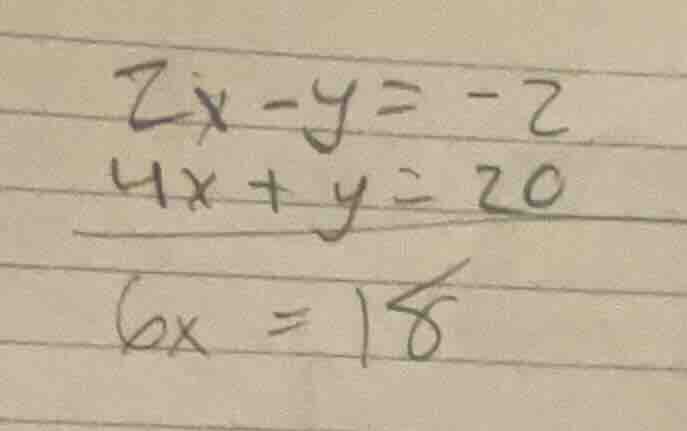 2x - y = -2
4x + y = 20
6x = 18